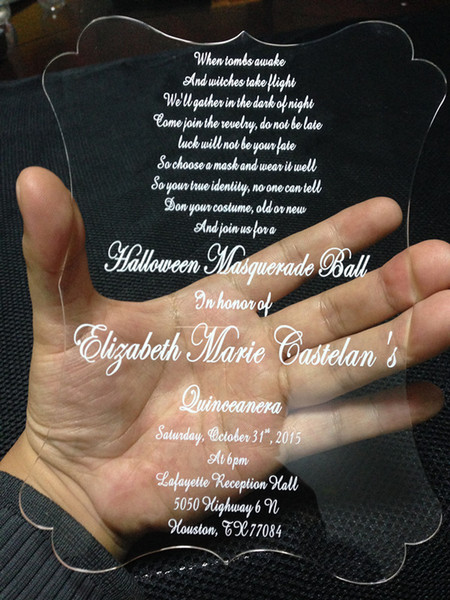 When tombs awake
And witches take flight
We'll gather in the dark of night
Come join the revelry, do not be late
luck will not be your fate
So choose a mask and wear it well
So your true identity, no one can tell
Don your costume, old or new
And join us for a
Halloween Masquerade Ball
In honor of
Elizabeth Marie Castelan 's
Quinceanera
Saturday, October 31st, 2015
At 6pm
Lafayette Reception Hall
5050 Highway 6 N
Houston, TX77084